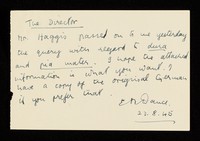 The Director
Mr Haggis passed on to me yesterday
the query with regard to dura
and pia mater. I hope the attached
information is what you want. I
have a copy of the original German
if you prefer that.
22.8.45